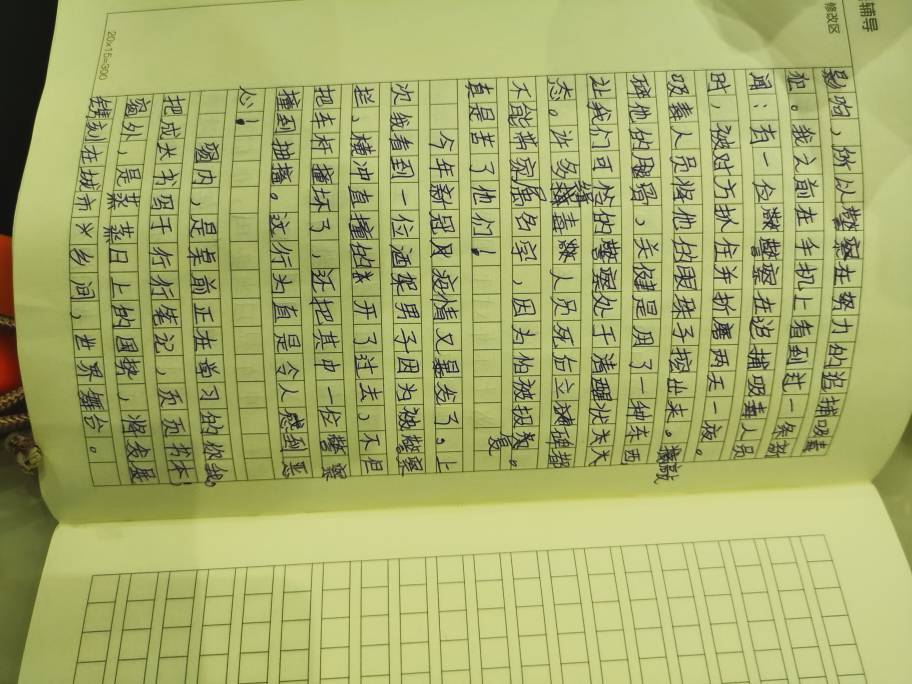 辅导
修改区
影响，所以警察在努力的追捕吸毒
犯。我之前在手机上看到过一条新
闻：有一位警察在追捕吸毒人员
时，被对方抓住并折磨两天一夜。
吸毒人员将他的眼珠子挖出来。敲
碎他的腿骨，关键是用了一种东西
让我们可怜的警察处于清醒状态
态。许多缉毒人员死后立碑都
不能带家属名字，因为怕被报复。
真是苦了他们！
今年新冠疫情又暴发了。上
次我看到一位酒驾男子因为被警察
拦，横冲直撞的开了过去，不但
把车杆撞坏了，还把其中一位警察
撞到拥撞。这行为真是令人感到恶
心！
窗内，是桌前正在学习的你我。
把成长书写于行行笔记，页页书本；
窗外，是蒸蒸日上的国势，将发展
镌刻在城市乡间，世界舞台。
20×15=300